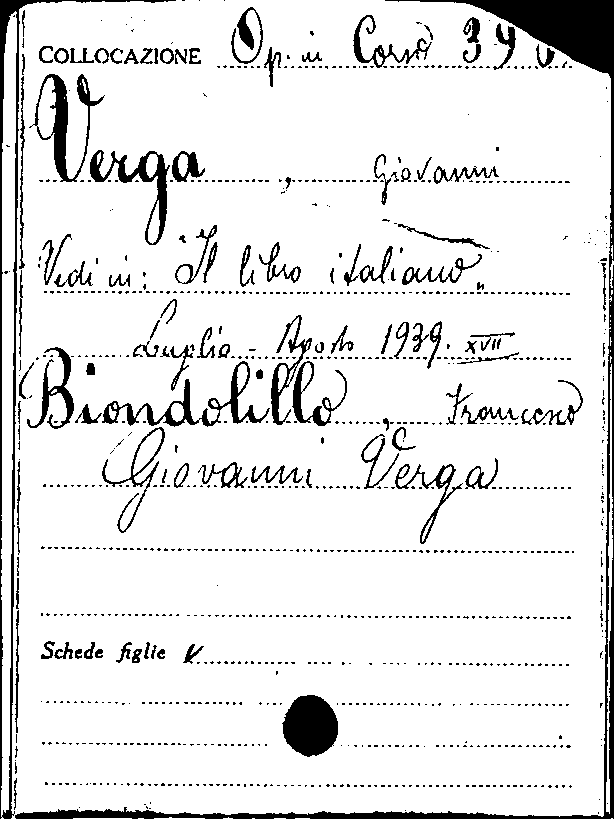 COLLOCAZIONE Op. in Corso
Verga, Giovanni
Vedi in: "Il libro italiano„
Luglio - Agosto 1939. XVII
Biondolillo, Francesco
Giovanni Verga
Schede figlie V